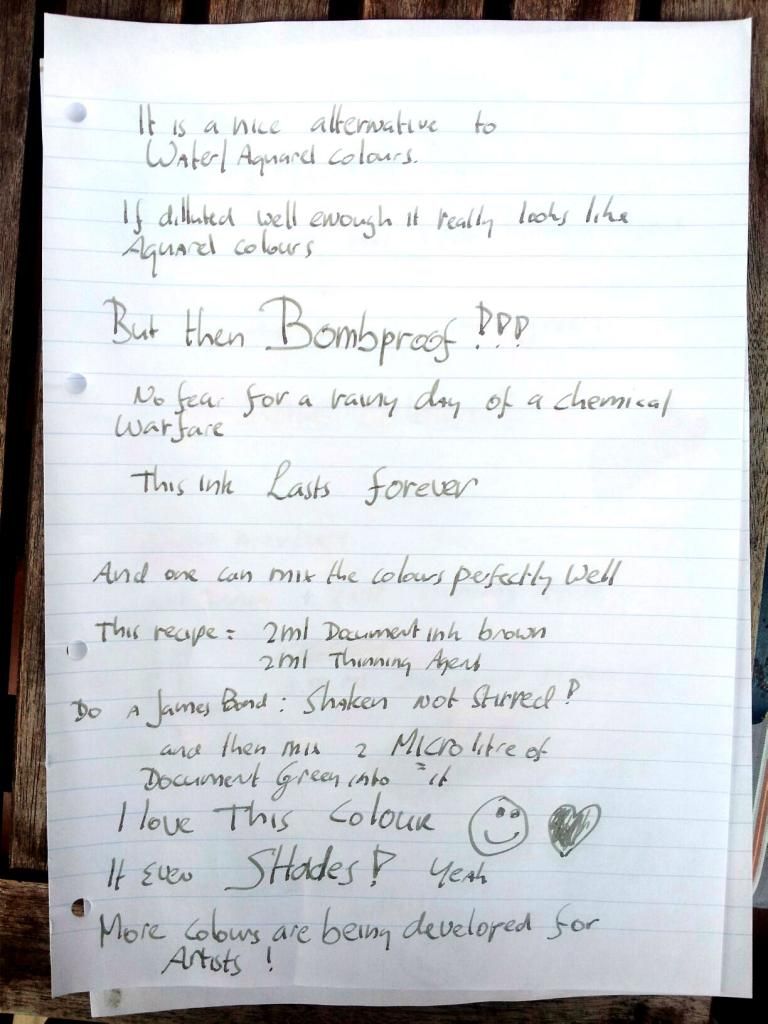 It is a nice alternative to
Water/ Aquarel colours.
If dilluted well enough it really looks like
Aquarel colours
But then Bombproof!!!
No fear for a rainy day of a chemical
Warfare
This ink Lasts forever
And one can mix the colours perfectly Well
This recipe = 2ml Document ink brown
2ml Thinning Agent
Do A James Bond : Shaken not Stirred!
and then mix 2 Microlitre of
Document Green into it
I love This Colour
It Even SHades! Yeah
More Colours are being developed for
Artists!